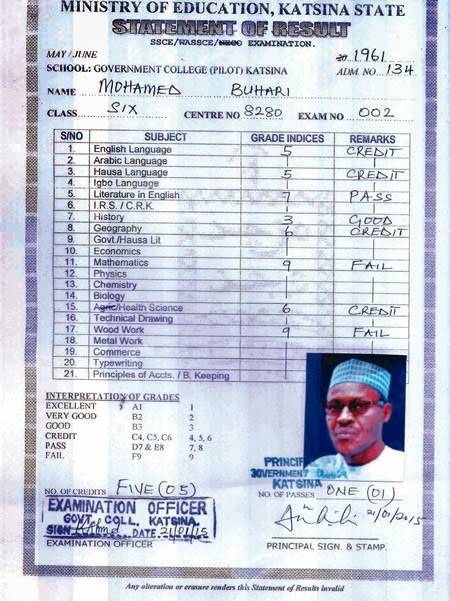 MINISTRY OF EDUCATION, KATSINA STATE
STATEMENT OF RESULT
SSCE/WASSCE/NECO EXAMINATION.
MAY/JUNE 20 1961
SCHOOL: GOVERNMENT COLLEGE (PILOT) KATSINA ADM. NO. 134
NAME MOHAMED BUHARI
CLASS SIX CENTRE NO 8280 EXAM NO 002
S/NO SUBJECT GRADE INDICES REMARKS
1. English Language 5 CREDIT
2. Arabic Language
3. Hausa Language 5 CREDIT
4. Igbo Language
5. Literature in English 7 PASS
6. I.R.S. / C.R.K.
7. History 3 GOOD
8. Geography 6 CREDIT
9. Govt./Hausa Lit
10. Economics
11. Mathematics 9 FAIL
12. Physics
13. Chemistry
14. Biology
15. Agric/Health Science 6 CREDIT
16. Technical Drawing
17. Wood Work 9 FAIL
18. Metal Work
19. Commerce
20. Typewriting
21. Principles of Accts. / B. Keeping
INTERPRETATION OF GRADES
EXCELLENT A1 1
VERY GOOD B2 2
GOOD B3 3
CREDIT C4, C5, C6 4, 5, 6
PASS D7 & E8 7, 8
FAIL F9 9
PRINCIP
GOVERNMENT
KATSINA
NO. OF CREDITS FIVE (05) NO. OF PASSES ONE (01)
EXAMINATION OFFICER
GOVT. COLL. KATSINA.
SIGN DATE 21/01/15
21/01/2015
EXAMINATION OFFICER PRINCIPAL SIGN. & STAMP.
Any alteration or erasure renders this Statement of Results invalid